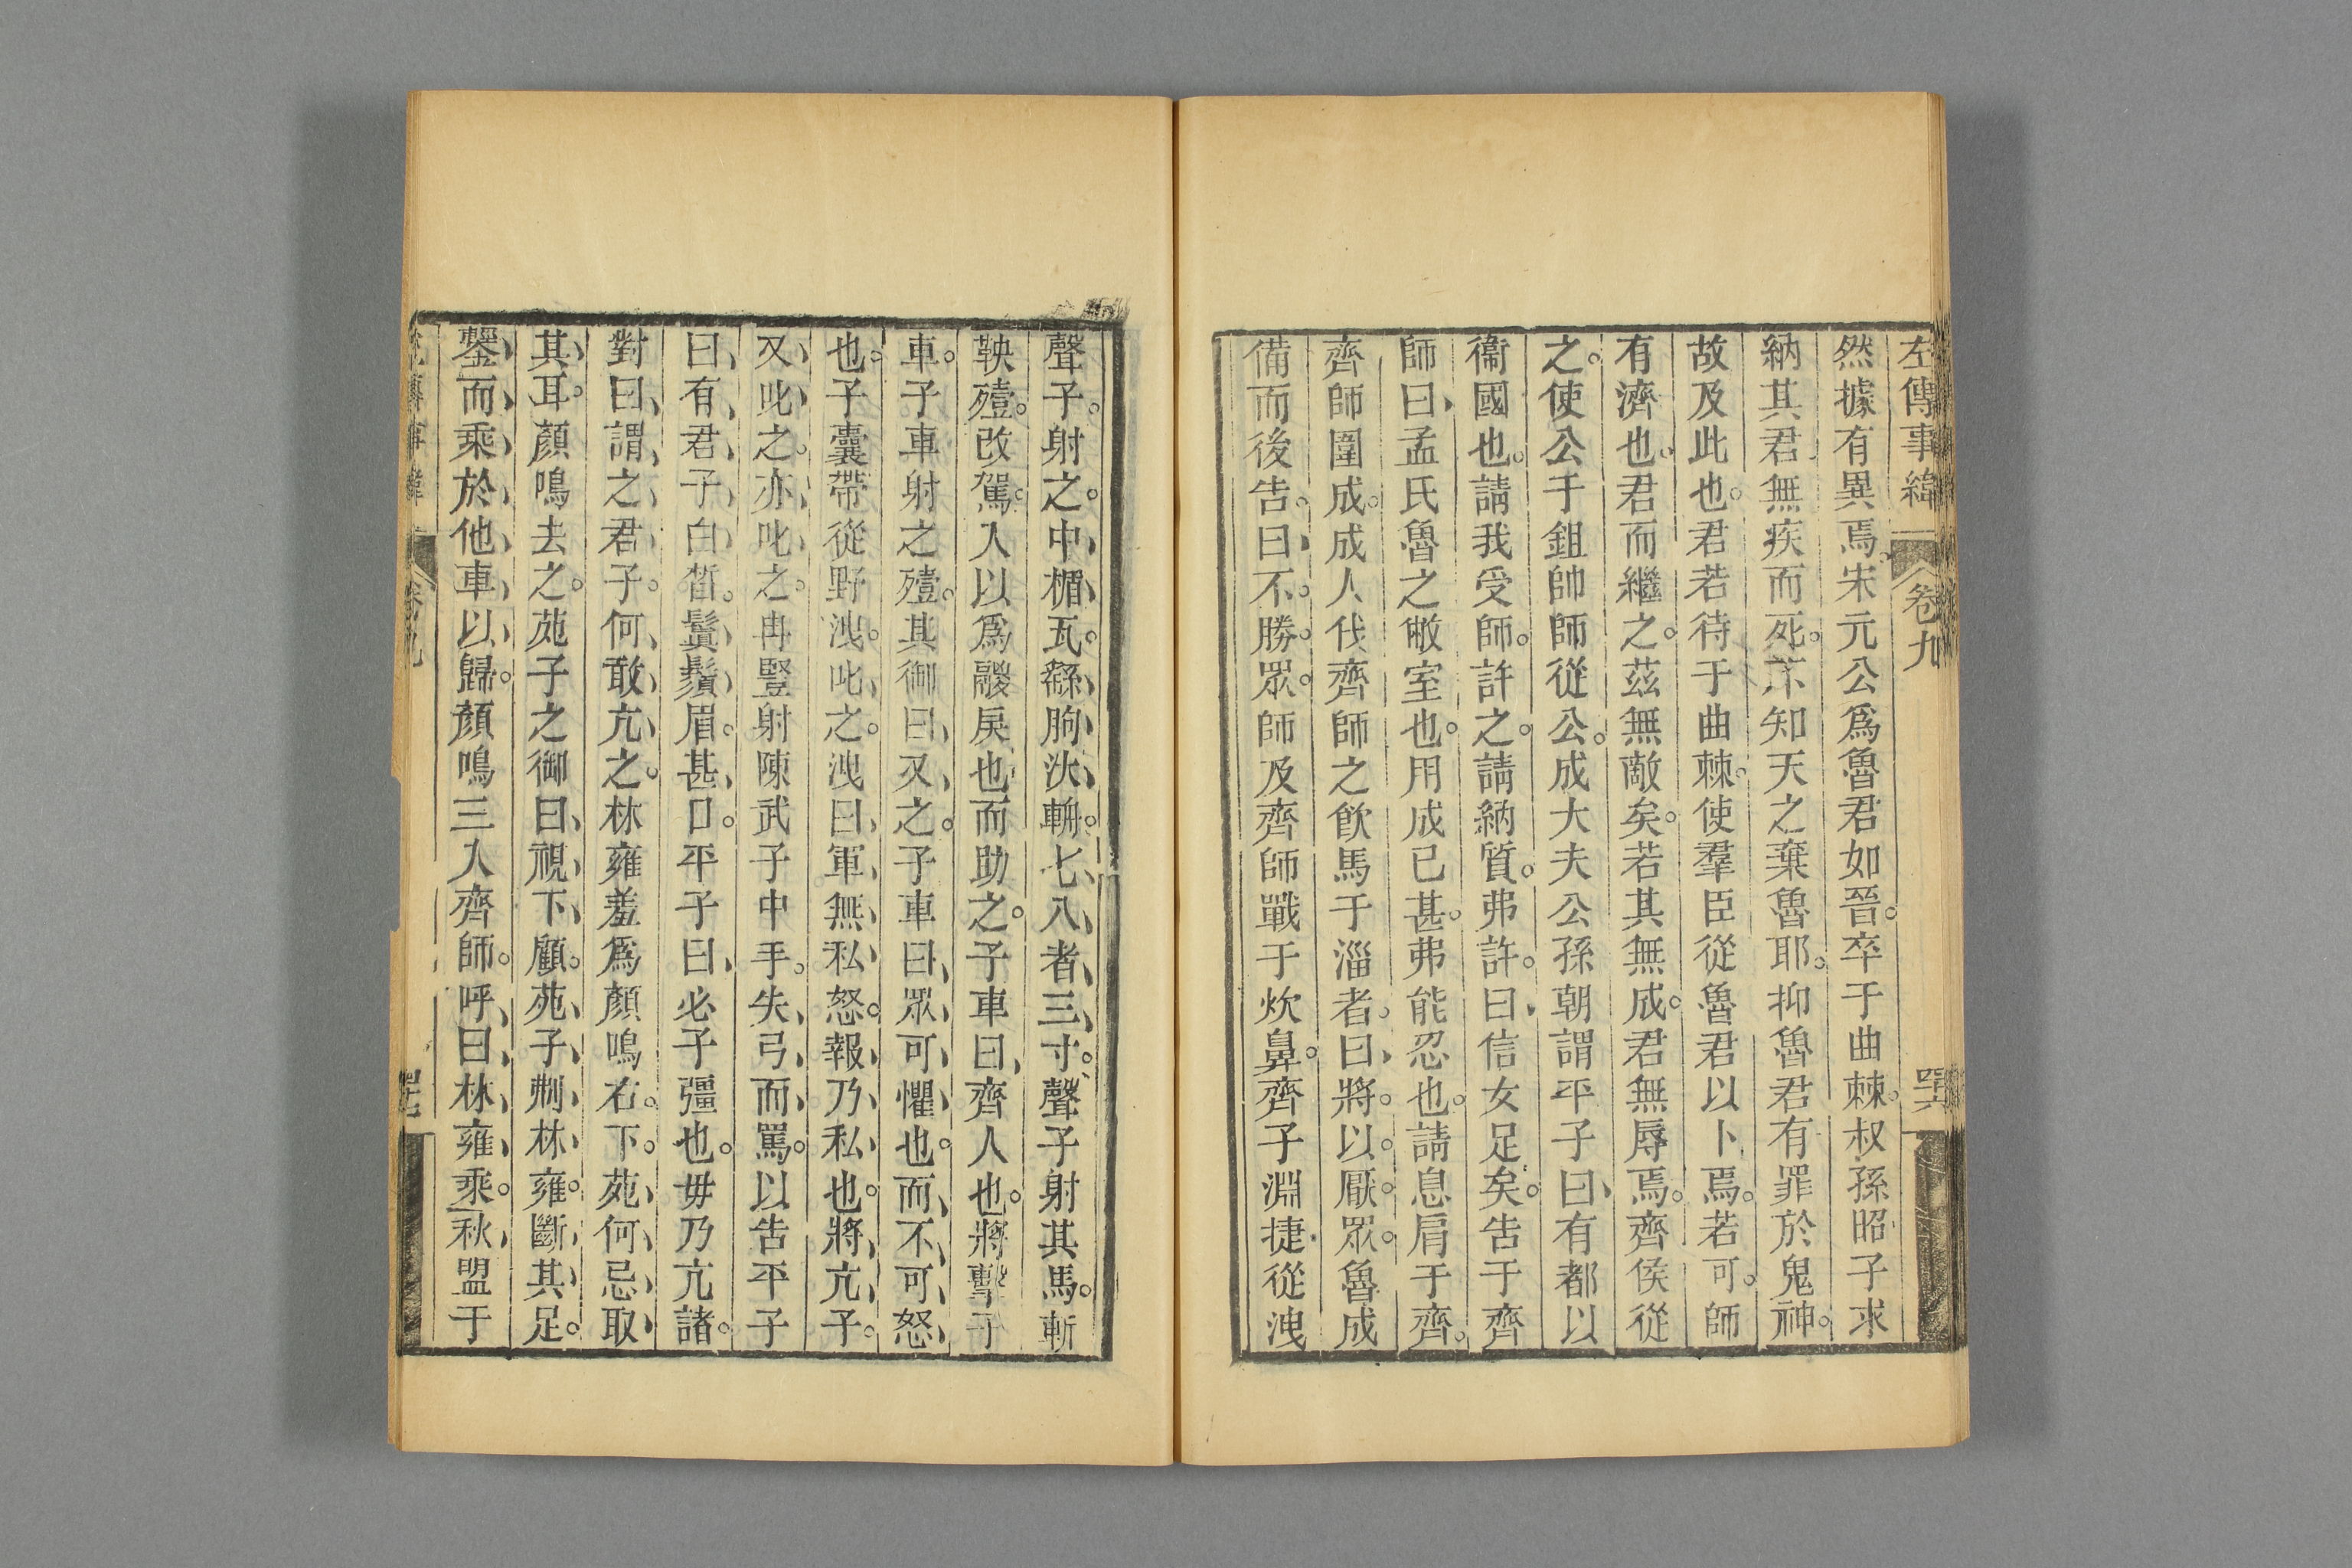 左傳事緯 卷九 四六
然據有異焉。宋元公爲魯君如晉。卒于曲棘。叔孫昭子求
納其君、無疾而死。不知天之棄魯耶。抑魯君有罪於鬼神。
故及此也。君若待于曲棘。使羣臣從魯君以卜焉。若可。師
有濟也、君而繼之。茲無敵矣。若其無成。君無辱焉。齊侯從
之。使公子鉏帥師從公。成大夫公孫朝謂平子曰、有都以
衞國也。請我受師。許之。請納質。弗許。曰、信女足矣。告于齊
師曰、孟氏魯之敝室也。用成已甚。弗能忍也。請息肩于齊。
齊師圍成。成人伐齊師之飮馬于淄者、曰、將。以。厭。眾。魯成
備而後告。曰、不。勝。眾。師及齊師戰于炊鼻。齊子淵捷從洩
聲子。射之。中、楯、瓦。繇、朐、汏、輈。匕、入、者、三、寸。聲子射其馬。斬
鞅殪。改駕。人以爲鬷戾也、而助之。子車曰、齊人也。將擊子
車。子車射之殪。其御曰、又、之。子車曰、眾、可、懼、也。而、不、可、怒、
也。子囊帶從野洩。叱、之。洩曰、軍、無、私、怒。報、乃、私、也。將、亢、子。
又、叱、之。亦、叱、之。冉豎射陳武子中手。失、弓、而、罵。以告平子
曰、有、君、子、白、晳。鬒、鬚、眉。甚、口。平子曰、必子彊也。毋乃亢諸。
對曰、謂、之、君、子。何、敢、亢、之。林雍羞爲顏鳴右。下。苑、何、忌、取、
其、耳。顏鳴去之。苑子之御曰、視、下、顧。苑、子、刜、林、雍。斷、其、足。
鑋、而、乘、於、他、車、以、歸。顏鳴三入齊師。呼、曰、林、雍、乘。秋盟于
左傳事緯 卷九 四七